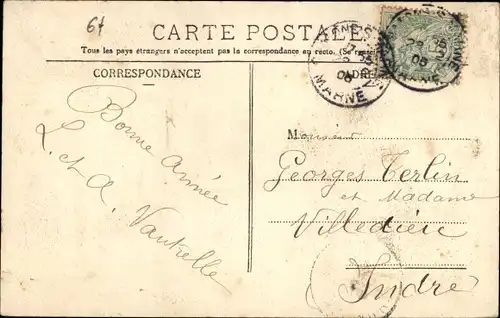 6f
CARTE POSTALE
Tous les pays étrangers n'acceptent pas la correspondance au recto. (Se rensei
CORRESPONDANCE
ADRE
MARNE
MARNE
Bonne Année
L. et A. Vautelle
Monsieur
Georges Terlin
et Madame
Villedieu
Indre